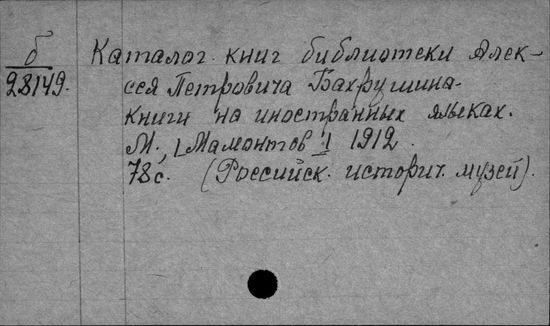 б
28149.
Каталог книг библиотеки Алек-
сея Петровича Бахрушина.
Книги на иностранных языках.
М., [Мамонтов] 1912.
78 с. (Российск. историч. музей).